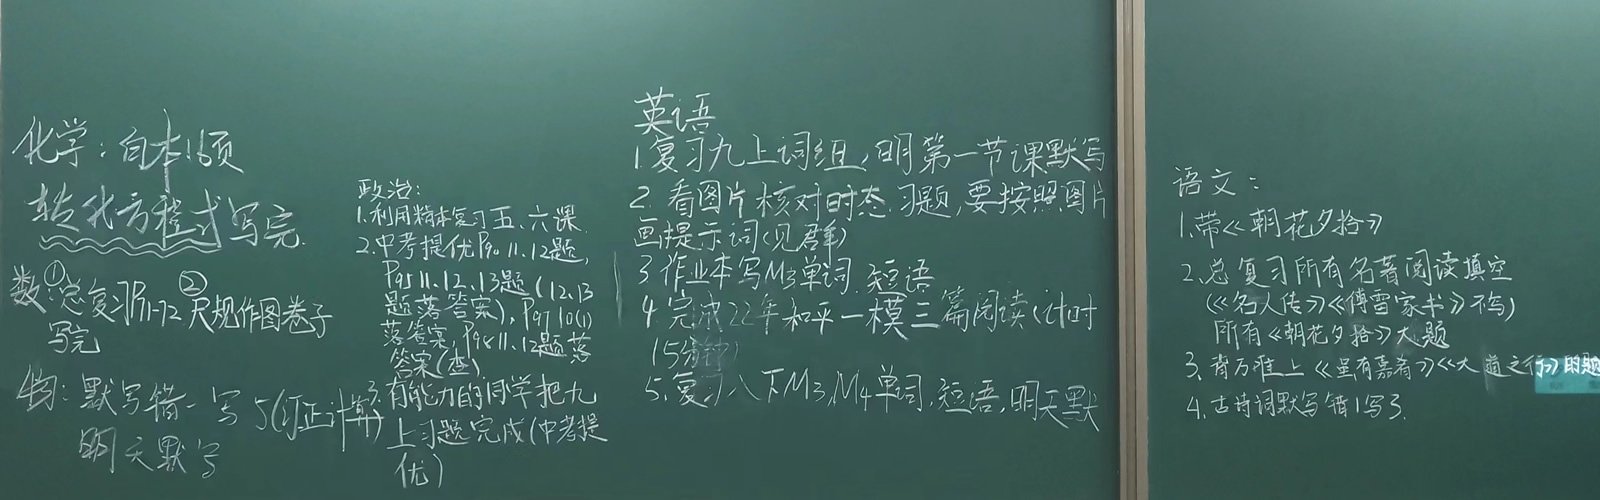 化学：白本16页
转化方程式写完.
数：①总复习P71-72 ②尺规作图卷子
写完
物：默写错一写5(订正计算)
明天默写
政治：
1.利用精本复习五、六课.
2.中考提优P90 11.12题,
P95 11.12.13题(12.13
题落答案),P97 10(1)
落答案,P98 11.12题落
答案(查)
3.有能力的同学把九
上习题完成(中考提
优)
英语
1.复习九上词组,明第一节课默写
2.看图片核对时态.习题,要按照图片
画提示词(见群)
3.作业本写M3单词.短语
4.完成22年和平一模三篇阅读(计时
15分钟)
5.复习八下M3,M4单词.短语,明天默
语文：
1.带《朝花夕拾》
2.总复习所有名著阅读填空
(《名人传》《傅雷家书》不写)
所有《朝花夕拾》大题
3.背万唯上《虽有嘉肴》《大道之行》的题
4.古诗词默写错1写3.